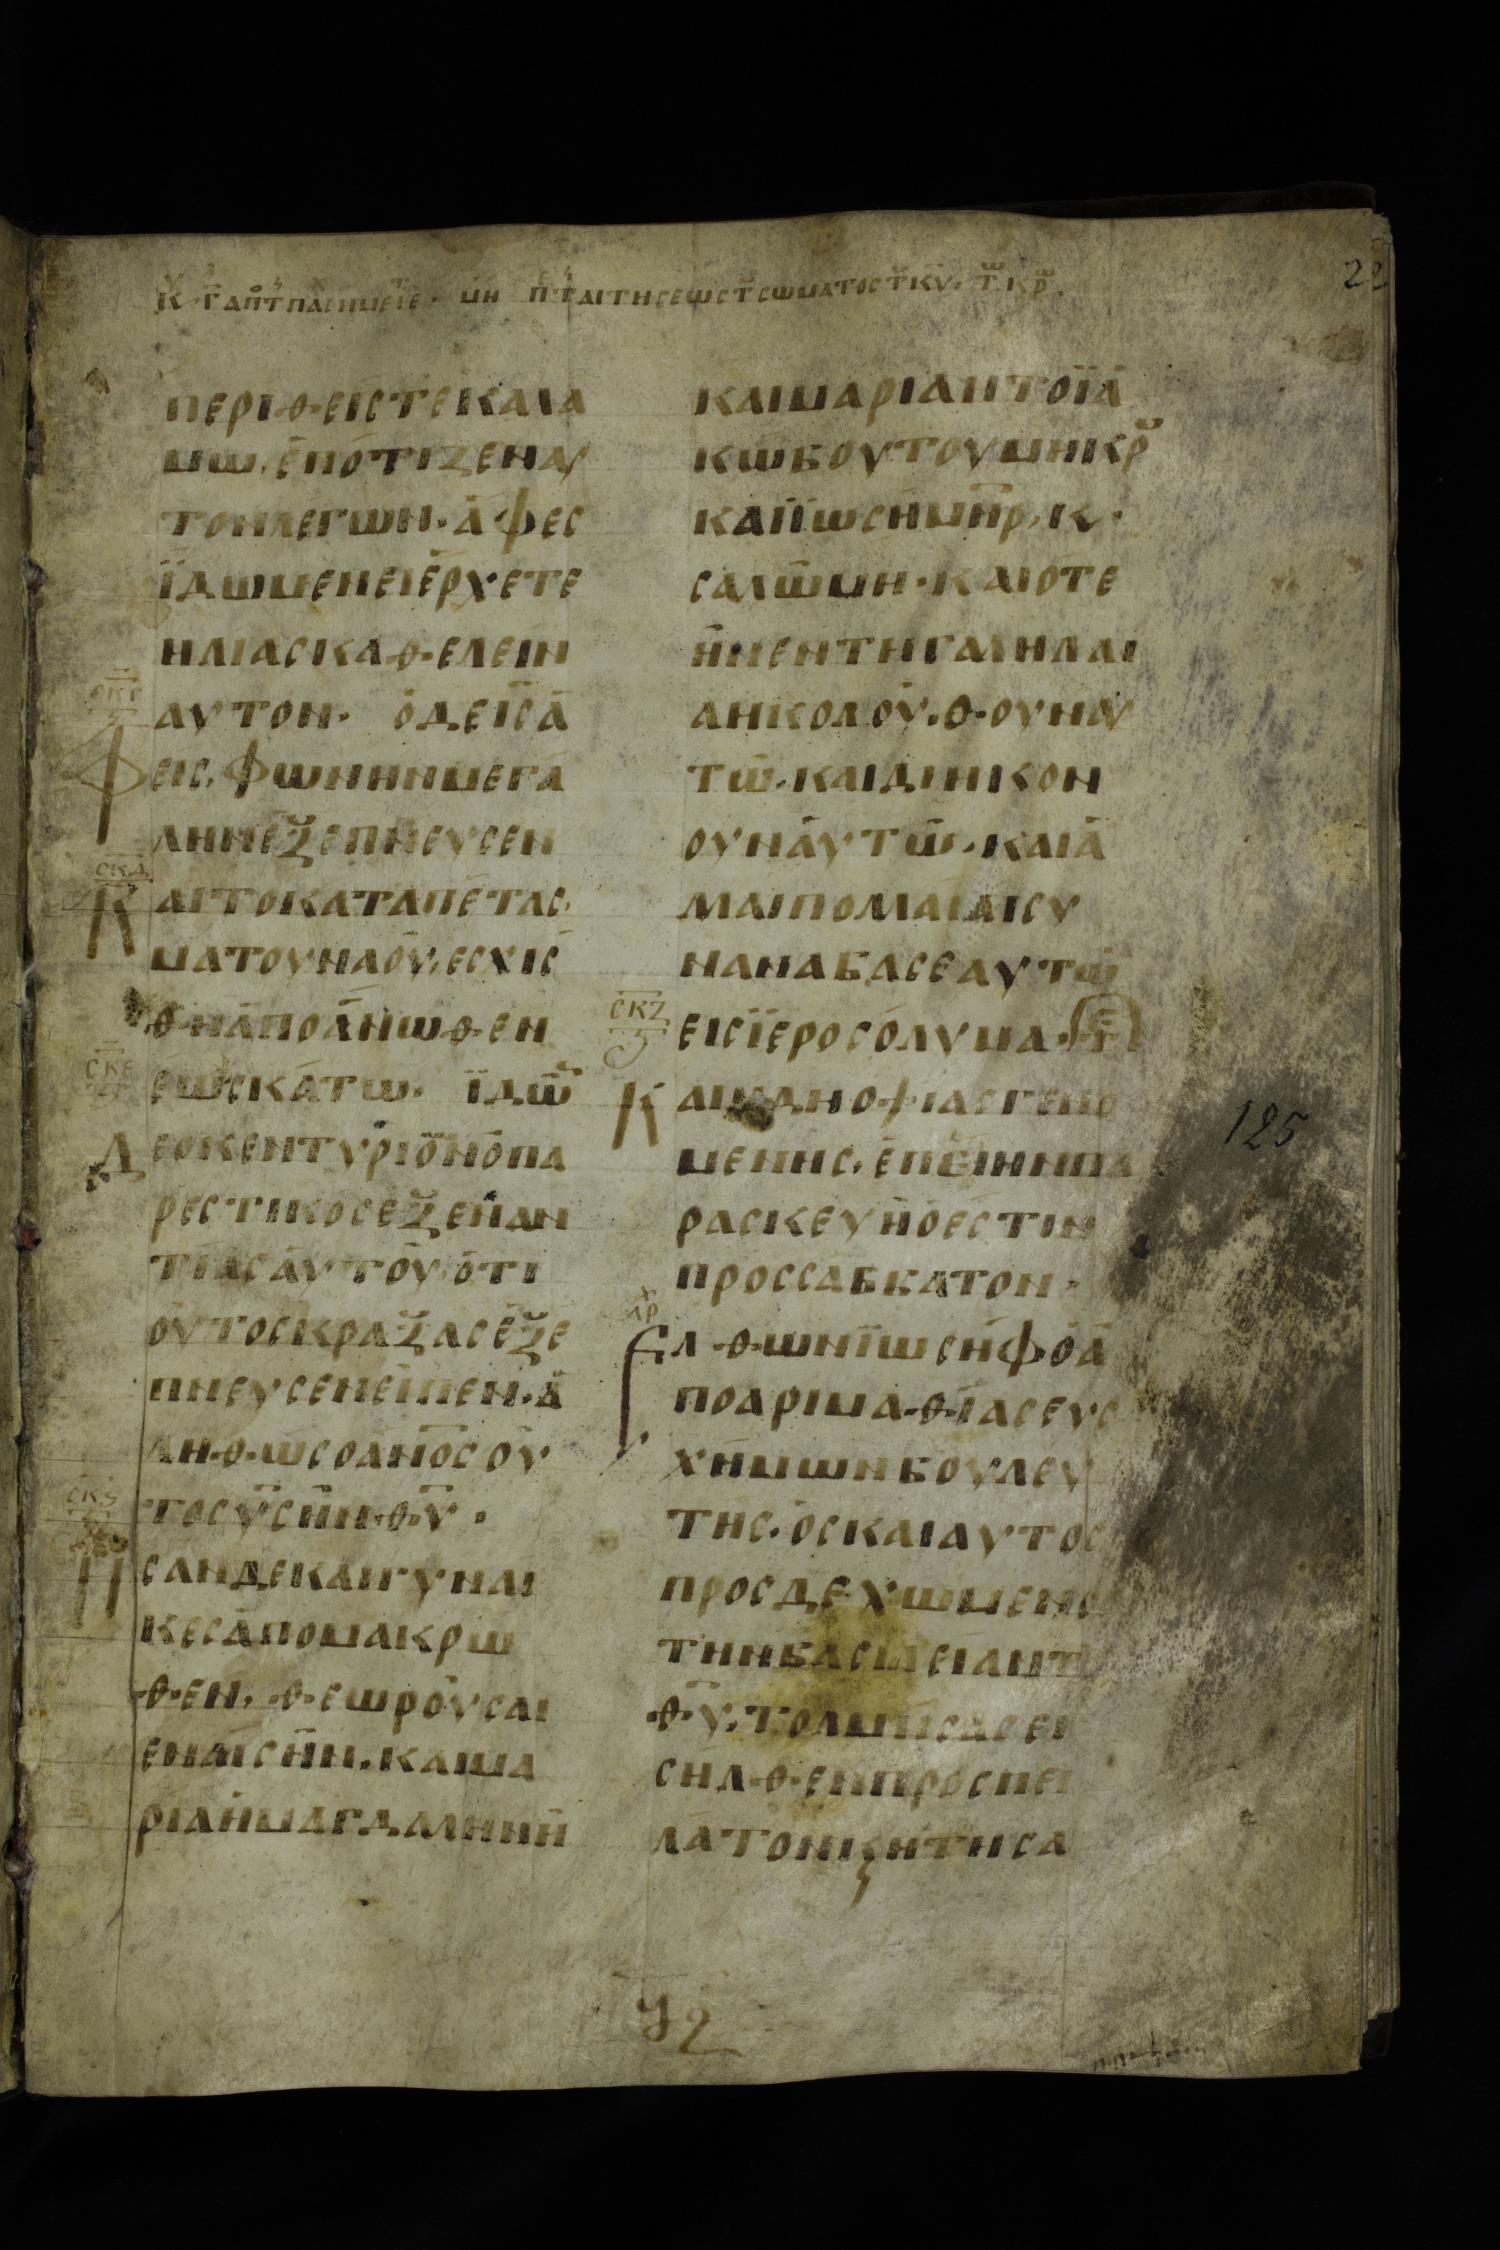 ΠΕΡΙΘΕΙΣΤΕΚΑΛΑ
ΜΩ, ΕΠΟΤΙΖΕΝΑΥ
ΤΟΝΛΕΓΩΝ· ΑΦΕΣ
ΪΔΩΜΕΝΕΙΕΡΧΕΤΕ
ΗΛΙΑΣΚΑΘΕΛΕΙΝ
ΑΥΤΟΝ· ΟΔΕΙΣΑ
ΦΕΙΣ, ΦΩΝΗΝΜΕΓΑ
ΛΗΝΕΞΕΠΝΕΥΣΕΝ
ΚΑΙΤΟΚΑΤΑΠΕΤΑΣ
ΜΑΤΟΥΝΑΟΥ, ΕΣΧΙΣ
ΘΗΑΠΟΑΝΩΘΕΝ
ΕΩΣΚΑΤΩ· ΪΔΩ
ΔΕΟΚΕΝΤΥΡΙΟΝΟΠΑ
ΡΕΣΤΙΚΟΣΕΞΕΝΑΝ
ΤΙΑΣΑΥΤΟΥΟΤΙ
ΟΥΤΟΣΚΡΑΞΑΣΕΞΕ
ΠΝΕΥΣΕΝΕΙΠΕΝ· Α
ΛΗΘΩΣΟΑΝΟΣΟΥ
ΤΟΣΥΣΗΝΘΥ·
ΗΣΑΝΔΕΚΑΙΓΥΝΑΙ
ΚΕΣΑΠΟΜΑΚΡΩ
ΘΕΝ, ΘΕΩΡΟΥΣΑΙ
ΕΝΑΙΣΗΝ, ΚΑΙΜΑ
ΡΙΑΗΜΑΓΔΑΛΗΝΗ
ΚΑΙΜΑΡΙΑΗΤΟΪΑ
ΚΩΒΟΥΤΟΥΜΗΚΡ
ΚΑΙΪΩΣΗΜΗΡ, Κ·
ΣΑΛΩΜΗ· ΚΑΙΟΤΕ
ΗΝΕΝΤΗΓΑΛΗΛΑΙ
ΑΗΚΟΛΟΥΘΟΥΝΑΥ
ΤΩ, ΚΑΙΔΙΗΚΟΝ
ΟΥΝΑΥΤΩ, ΚΑΙΑ
ΜΑΙΠΟΜΑΙΑΙΣΥ
ΝΑΝΑΒΑΣΕΑΥΤΩ
ΕΙΣΪΕΡΟΣΟΛΥΜΑ·
ΚΑΙΗΔΗΟΦΙΑΣΓΕΝΟ
ΜΕΝΗΣ, ΕΠΕΙΗΝΠΑ
ΡΑΣΚΕΥΗΟΕΣΤΙΝ
ΠΡΟΣΣΑΒΒΑΤΟΝ·
ΕΛΘΩΝΪΩΣΗΦΟΑ
ΠΟΑΡΙΜΑΘΙΑΣΕΥΣ
ΧΗΜΩΝΒΟΥΛΕΥ
ΤΗΣ, ΟΣΚΑΙΑΥΤΟΣ
ΠΡΟΣΔΕΧΩΜΕΝΟ
ΤΗΝΒΑΣΙΛΕΙΑΝΤ
ΘΥ, ΤΟΛΜΗΣΑΣΕΙ
ΣΗΛΘΕΝΠΡΟΣΠΕΙ
ΛΑΤΟΝΚΗΤΗΣΑ
125